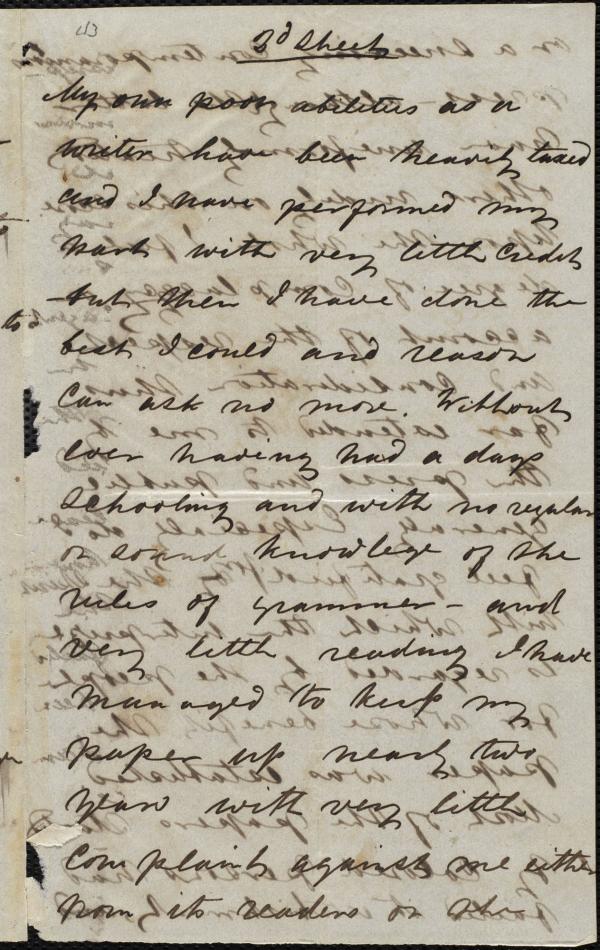 3d Sheet
My own poor abilities as a
writer have been heavily taxed
and I have performed my
part with very little credit
- but then I have done the
best I could and reason
can ask no more. Without
ever having had a days
schooling and with no regular
or sound knowlege of the
rules of grammer - and
very little reading I have
managed to keep my
paper up nearly two
years with very little
complaint against me either
from its readers or the
to